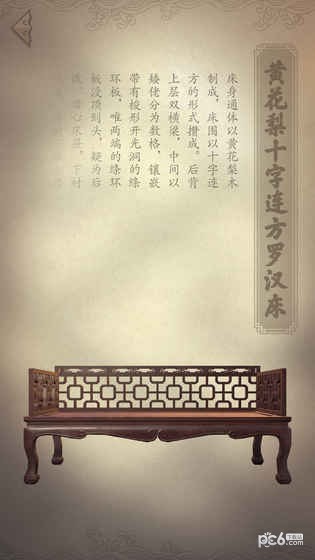 黄花梨十字连方罗汉床
床身通体以黄花梨木
制成，床围以十字连
方的形式攒成。后背
上层双横梁，中间以
矮佬分为数格，镶嵌
带有梭形开光洞的绦
环板，唯两端的绦环
板没顶到头，疑为后
心床屉。下衬
pc6下载站
.com